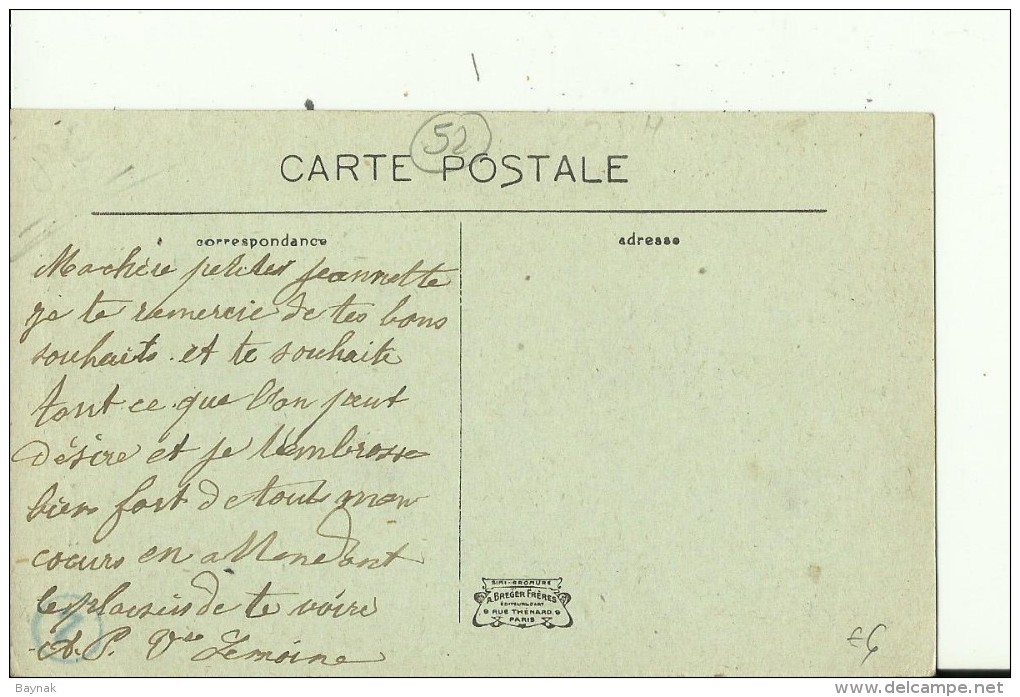 52
CARTE POSTALE
correspondance
adresse
Ma chère petites Jeannette
je te remercie de tes bons
souhaits. et te souhaite
tout ce que l'on peut
désire et je t'embrasse
biens fort de touts mon
coeurs en attendant
le plaisir de te voire
A. P. Vve Lemoine
SIMI-BROMURE
A. BREGER FRÈRES
ÉDITEURS D'ART
9 RUE THÉNARD 9
PARIS
Baynak
www.delcampe.net